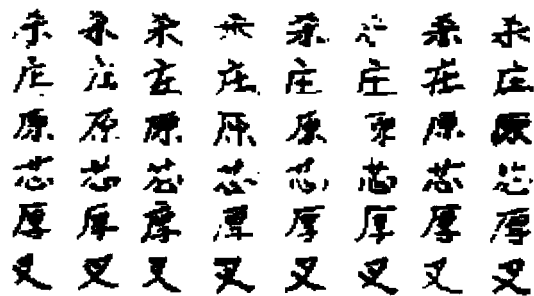 杂 杂 杂 杂 杂 杂 杂
庄 庄 庄 庄 庄 庄 庄 庄
原 原 原 原 原 原 原 原
芯 芯 芯 芯 芯 芯 芯 芯
厚 厚 厚 厚 厚 厚 厚 厚
叉 叉 叉 叉 叉 叉 叉 叉